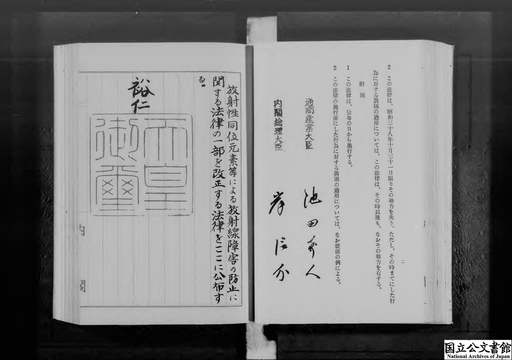 2 この法律は、昭和三十八年十月三十一日限りその効力を失う。ただし、その時までにした行
為に対する罰則の適用については、この法律は、その時以後も、なおその効力を有する。
附則
1 この法律は、公布の日から施行する。
2 この法律の施行前にした行為に対する罰則の適用については、なお従前の例による。
通商産業大臣 池田勇人
内閣総理大臣 岸信介
二
放射性同位元素等による放射線障害の防止に
関する法律の一部を改正する法律をここに公布す
る。
裕仁
天皇
御璽
国立公文書館
National Archives of Japan